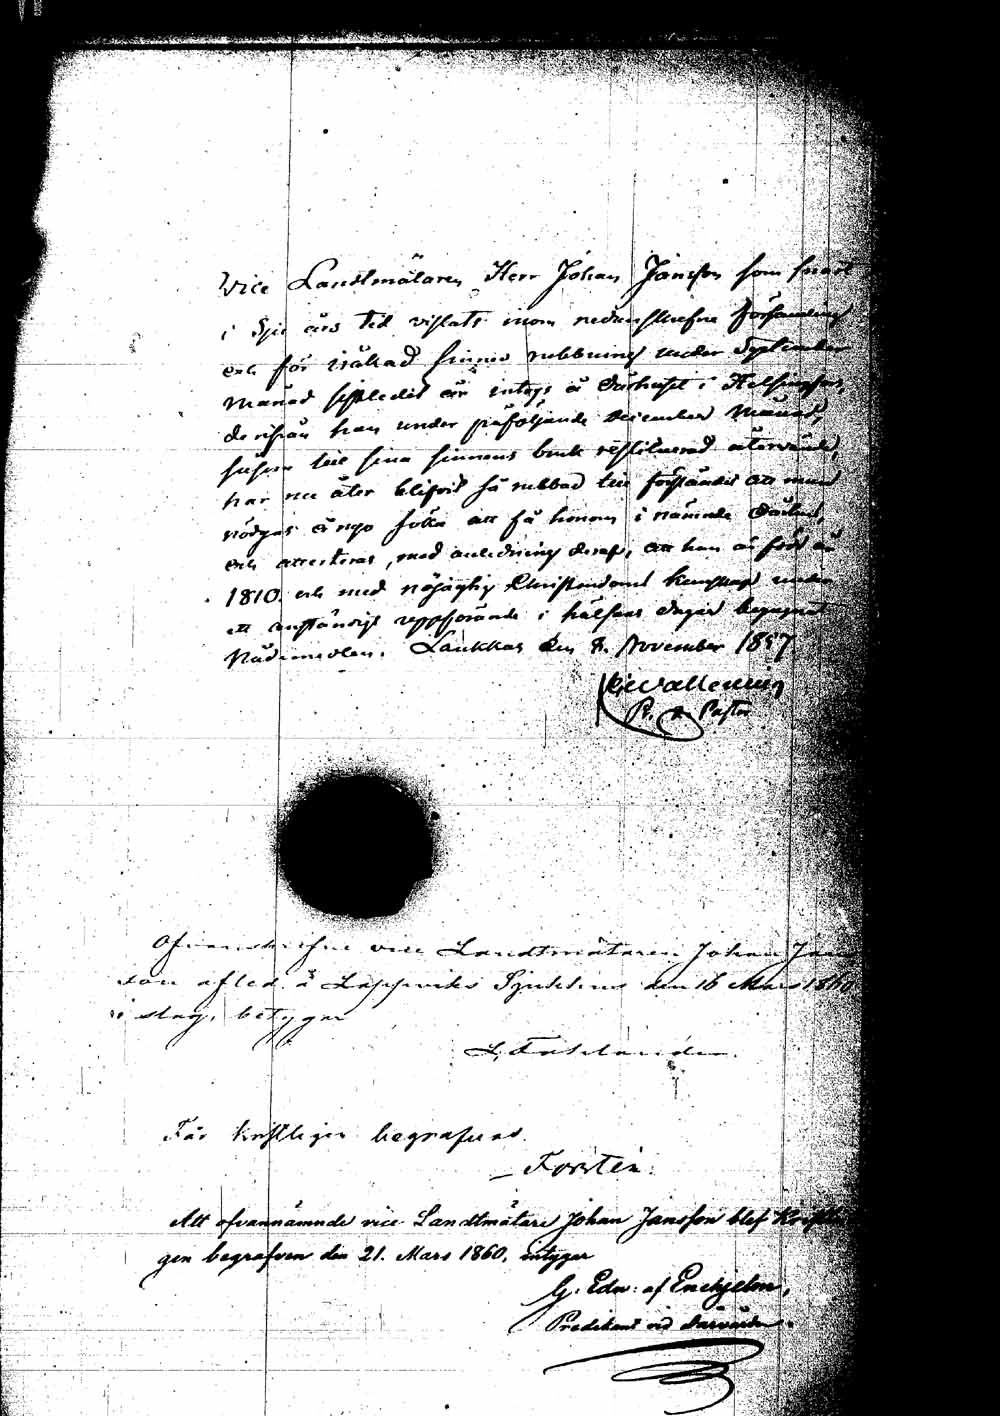 Vice Landtmätaren Herr Johan Jansson som snart
i Sju års tid vistats inom nedanskrefne Församling
och för iråkad sinnes rubbning under September
Månad sistledit år intogs å Dårhuset i Helsingfors,
derifrån han under påföljande December Månad,
såsom till sina sinnens bruk restituerad återvände,
har nu åter blifvit så rubbad till förståndet att man
nödgas å nyo söka att få honom i nämnde Dårhus,
och attesteras, med anledning deraf, att han är född år
1810. och med nöjaktig Christendoms kunskap under
ett anständigt uppförande i hälsans dagar begagnat
Nådemedlen. Laukkas den 8. November 1857
Wallenius
Pr. Pastor
Ofvanskrefne vice Landtmätaren Johan Jans
son afled å Lappviks Sjukhus den 16 Mars 1860
i slag, betygar
L. Fahlander.
Får kristligen begrafvas.
Forstén.
Att ofvannämnde vice Landtmätare Johan Jansson blef Kristli
gen begrafven den 21. Mars 1860, intygar
G. Edw: af Enehjelm,
Predikant vid Dårvården.